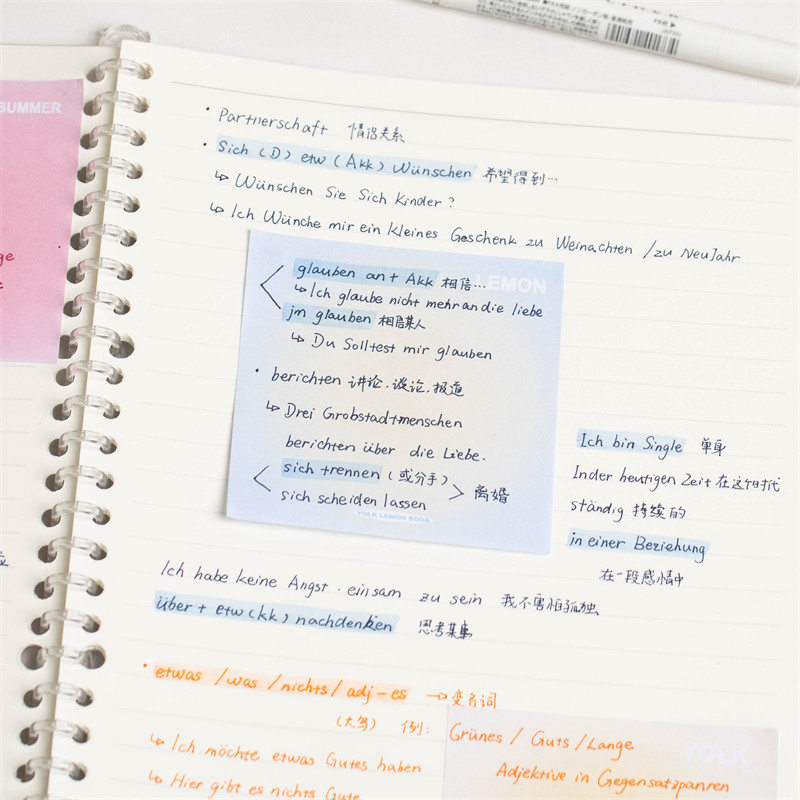 SUMMER
ge
· Partnerschaft 情侣关系
· Sich (D) etw (Akk) Wünschen 希望得到...
↳ Wünschen Sie Sich Kinder?
↳ Ich Wünche mir ein kleines Geschenk zu Weinachten / zu NeuJahr
LEMON
glauben an + Akk 相信...
↳ Ich glaube nicht mehr an die liebe
jm glauben 相信某人
↳ Du Solltest mir glauben
· berichten 讲论.谈论.报道
↳ Drei Grobstadtmenschen
berichten über die Liebe.
sich trennen (或分手)
sich scheiden lassen > 离婚
YOLK LEMON SODA
Ich bin Single 单身
Inder heutigen Zeit 在这个时代
ständig 持续的
in einer Beziehung
在一段感情中
Ich habe keine Angst . einsam zu sein 我不害怕孤独
über + etw (kk) nachdenken 思考某事
· etwas / was / nichts / adj - es → 变名词
(大写) 例: Grünes / Guts / Lange
YOLK
↳ Ich möchte etwas Gutes haben
Adjektive in Gegensatzpanren
↳ Hier gibt es nichts Gute